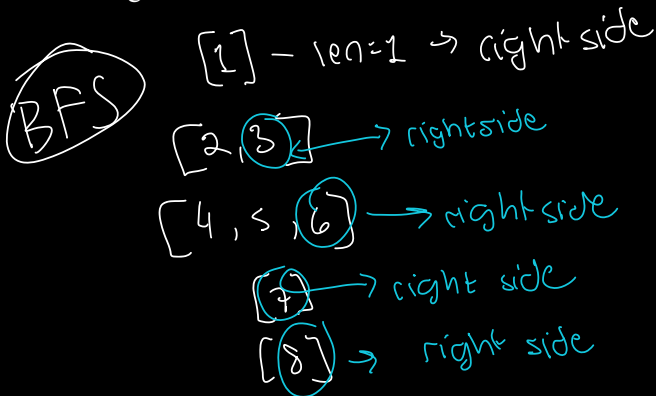 [1] - len=1 → right side
BFS
[2, 3] → rightside
[4, 5, 6] → right side
[7] → right side
[8] → right side